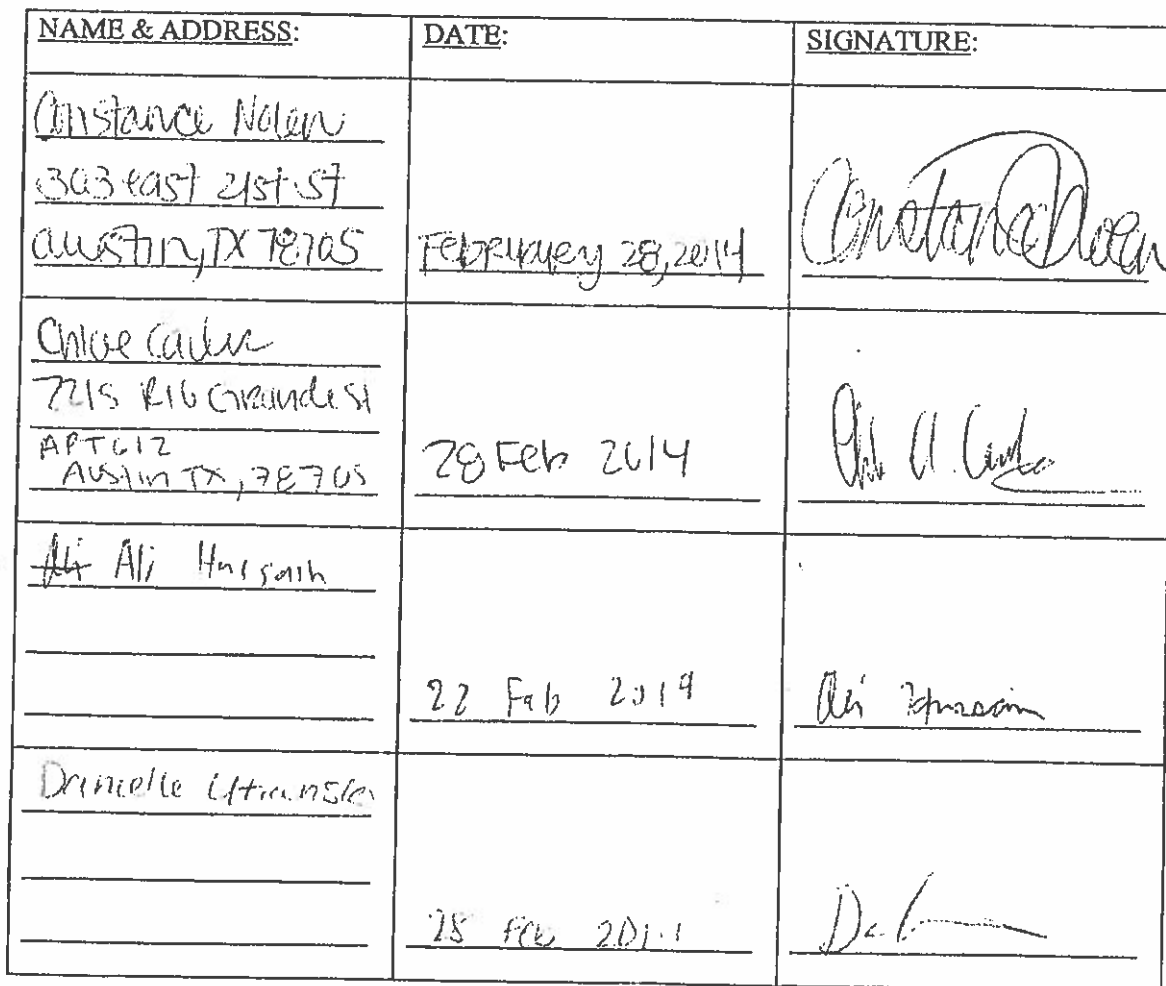 NAME & ADDRESS: DATE: SIGNATURE:
Constance Nolen
303 east 21st St
austin, TX 78705 February 28, 2014 Constance Nolen
Chloe
2215 Rio Grande St
APT 612
Austin TX, 78705 28 Feb 2014
Ali Ali Hussain
22 Feb 2014 Ali Hussain
Danielle
28 Feb